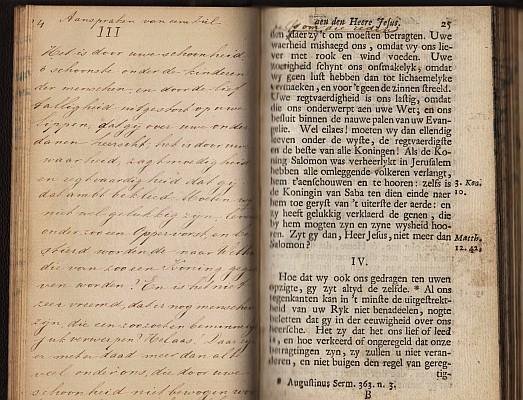 24 Aanspraken van eene ziel
III
Het is door uwe schoonheid
ô schoonste onder de kinderen
der menschen, en door de lief-
talligheid uitgestort op uwe
lippen, dat gij over uwe onder-
danen heerscht, het is door uwe
waarheid, zagtmoedigheid
en regtvaardigheid dat gij
dat ambt bekleed.
niet wel gelukkig zyn,
onder zoo een Oppervorst, en
bestierd worden de naar
die van zoo een Koning gege-
ven worden? En is het niet
zeer vreemd, dat er nog menschen
zyn, die een zoo zoeten
juk verwerpen? Helaas!
er meer en daad meer dan al te
veel onder ons, die door uwe
schoonheid niet bewogen wor-
aen den Heere Jesus. 25
den daer zy't om moesten betragten. Uwe
waerheid mishaegd ons, omdat wy ons lie-
ver met rook en wind voeden. Uwe
schynt ons onsmakelyk, omdat
wy geen lust hebben dan tot lichaemelyke
vermaeken, en voor't geen de zinnen streeld.
Uwe regtveerdigheid is ons lastig, omdat
die ons onderwerpt aen uwe Wet; en ons
besluit binnen de nauwe palen van uw Evan-
gelie. Wel eilaes! moeten wy dan ellendig
leeven onder de wyste, de regtvaerdigste
en de beste van alle Koningen! Als de Ko-
ning Salomon was verheerlykt in Jerusalem
hebben alle omleggende volkeren verlangt,
hem t'aenschouwen en te hooren: zelfs is
de Koningin van Saba ten dien einde naer
hem toe geryst van 't uiterste der aerde: en
zy heeft gelukkig verklaerd de genen, die
by hem mogten zyn en zyne wysheid hoo-
ren. Zyt gy dan, Heer Jesus, niet meer dan
Salomon?
3. Kon.
10.
Matth.
12. 42.
IV.
Hoe dat wy ook ons gedragen ten uwen
opzigte, gy zyt altyd de zelfde. * Al ons
tegenkanten kan in 't minste de uitgestrekt-
heid van uw Ryk niet benadeelen, nogte
beletten dat gy in der eeuwigheid over ons
heersche. Het zy dat het ons lief of leed
is, en hoe verkeerd of ongeregeld dat onze
betragtingen zyn, zy zullen u niet veran-
deren, en niet buigen den regel van gereg-
tig-
* Augustinus Serm. 363. n. 3.
B